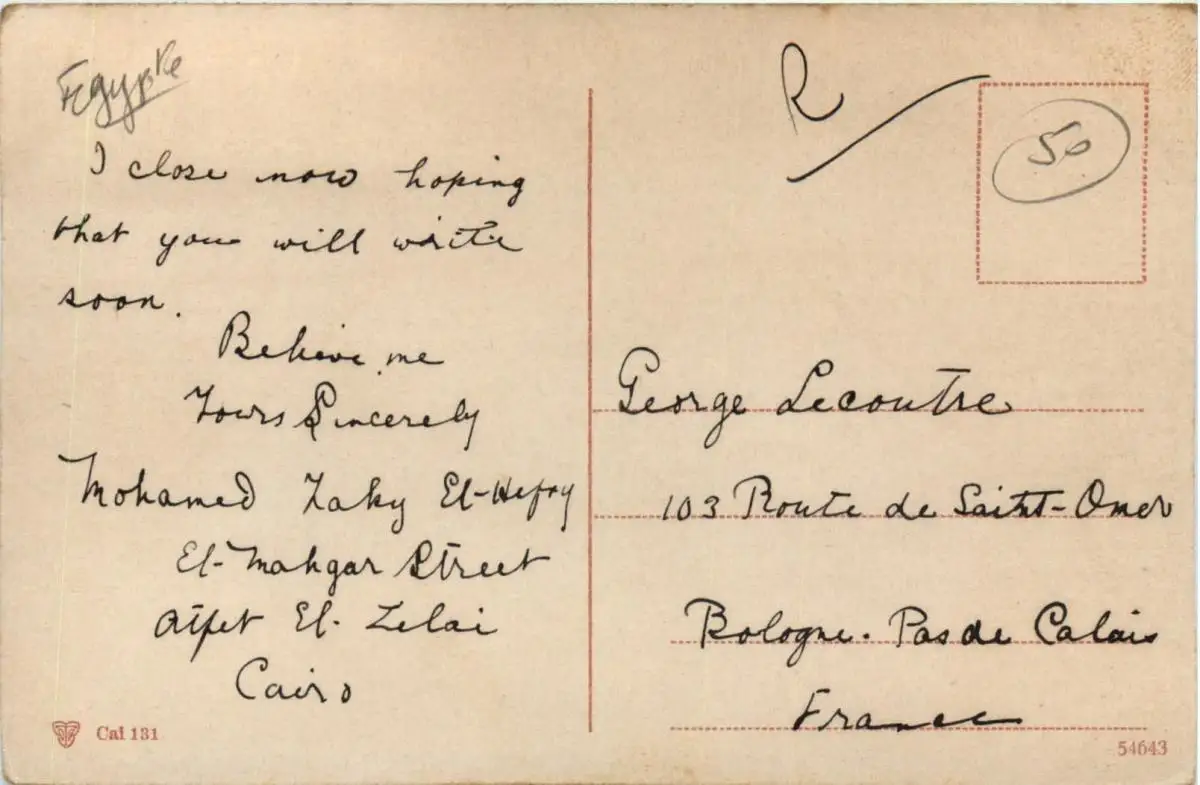 Egypte
I close now hoping
that you will write
soon.
Believe me
Yours Sincerely
Mohamed Zaky El-Hefny
El-Mahgar Street
Atfet El-Zelai
Cairo
Cai 131
R
50
George Lecoutre
103 Route de Saint-Omer
Bologne. Pas de Calais
France
54643